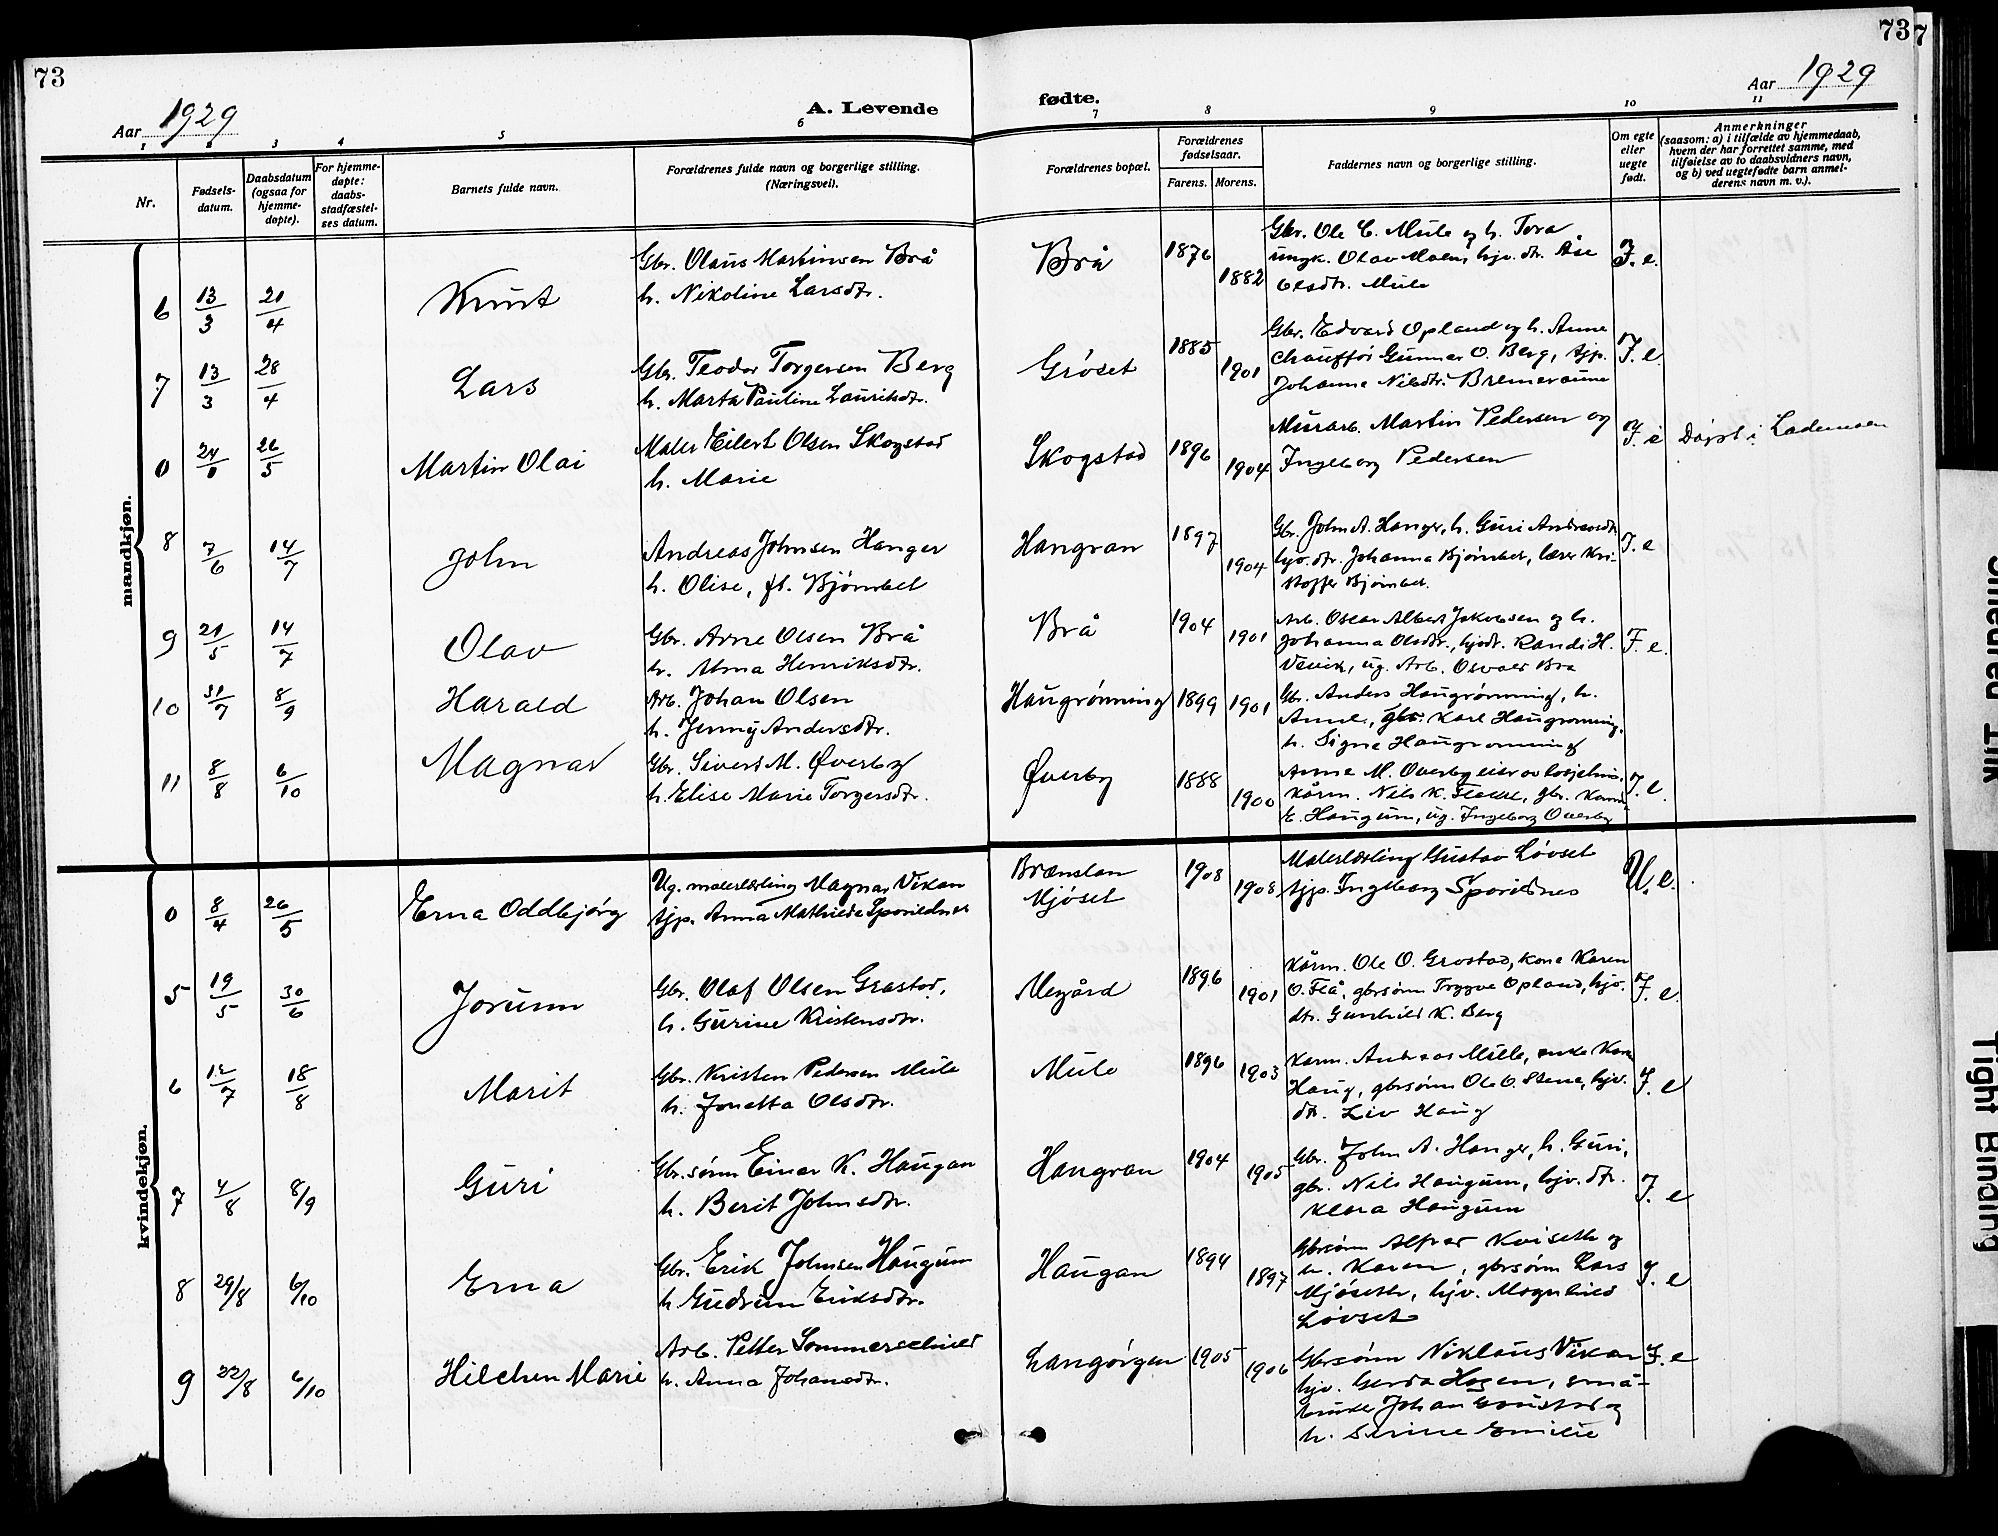 73
Aar 1929
A. Levende
1 2 3 4 5 6
Nr.
Fødsels-
datum.
Daabsdatum
(ogsaa for
hjemme-
døpte).
For hjemme-
døpte:
daabs-
stadfæstel-
ses datum.
Barnets fulde navn.
Forældrenes fulde navn og borgerlige stilling.
(Næringsvei).
73
Aar 1929
fødte.
7 8 9 10 11
Forældrenes bopæl.
Forældrenes
fødselsaar.
Farens. Morens.
Faddernes navn og borgerlige stilling.
Om egte
eller
uegte
født.
Anmerkninger
(saasom: a) i tilfælde av hjemmedaab,
hvem der har forrettet samme, med
tilføielse av to daabsvidners navn,
og b) ved uegtefødte barn anmel-
derens navn m. v.).
mandkjøn.
6 13/3 21/4 Knut
Gbr. Olaus Martinsen Brå
h. Nikoline Larsdtr.
Brå 1876 1882
Gbr. Ole C. Mule og h. Tora
ungk. Olav Moen, hjv. dtr. Åse
Olsdtr. Mule
F. e.
7 13/3 28/4 Lars
Gbr. Teodor Torgersen Berg
h. Marta Pauline Lauritsdtr.
Grøset 1885 1901
Gbr. Edvard Opland og h. Anne
Chauffør Gunnar O. Berg, tjp.
Johanna Nilsdtr. Bremeraune
F. e
0 26/5 Martin Olai
Maler Eilert Olsen Skogstad
h. Marie
Skogstad 1896 1904
Murarb. Martin Pedersen og
Ingeborg Pedersen
F. e Døpt i Lademoen
8 7/6 14/7 John
Andreas Johnsen Hanger
h. Olise, f. Bjørnbet
Hangran 1897 1904
Gbr. John A. Hanger, h. Guri Andreasdtr.
hjv. dtr. Johanna Bjørnbet, lærer Kri-
stoffer Bjørnbet.
F. e
9 21/5 14/7 Olav
Gbr. Arne Olsen Brå
h. Alma Henriksdtr.
Brå 1904 1901
Arb. Oscar Albert Jakobsen og h.
Johanna Olsdtr., hjdtr. Randi H.
ug. Arb. Osvald Brå
F. e.
10 31/7 8/9 Harald
Arb. Johan Olsen
h. Jenny Andersdtr.
Haugrønning 1899 1901
Gbr. Anders Haugrønning, h.
Anne, gbr. Karl Haugrønning,
h. Signe Haugrønning
11 8/8 6/10 Magnar
Gbr. Sivert M. Øverby
h. Elise Marie Torgersdtr.
Øverby 1888 1900
Anna M. Overby
kårm. Nils K. gbr.
E. Haugum, ug. Ingeborg Overby
F. e.
kvindekjøn.
0 8/4 26/5 Erna Oddbjørg
Ug. malerlærling Magnar Vikan
tjp. Anna Mathilde Sporildnes
Brænslan
Mjøset 1908 1908
Malerlærling Gustav Løvset
tjp. Ingeborg Sporildnes
U. e.
5 19/5 30/6 Jorunn
Gbr. Olaf Olsen Grostad,
h. Gurine Kristensdtr.
Megård 1896 1901
Kårm. Ole O. Grostad, kone Karen
O. Flå, gbrsønn Trygve Opland, hjv.
dtr. Gunhild K. Berg
F. e.
6 12/7 18/8 Marit
Gbr. Kristen Pedersen Mule
h. Jonetta Olsdtr.
Mule 1896 1903
Kårm. Andreas Mule, enke
Haug, gbrsønn Ole O. Stene, hjv.
dtr. Liv Haug
F. e
7 4/8 8/9 Guri
Gbr.sønn Einar K. Haugan
h. Berit Johnsdtr.
Hangran 1904 1905
Gbr. John A. Hanger, h. Guri,
gbr. Nils Haugum, hjv. dtr.
Klara Haugum
F. e
8 29/8 6/10 Erna
Gbr. Erik Johnsen Haugum
h. Gudrun Eriksdtr.
Haugan 1894 1897
Gbrsønn Alfred Kviseth og
h. Karen, gbrsønn Lars
Mjøseth, hjv. Magnhild
Løvset
F. e
9 22/8 6/10 Hilchen Marie
Arb. Petter Sommerschield
h. Anna Johansdtr.
Langørgen 1905 1906
Gbrsønn Niklaus Vikan
hjv. Gerda Hogen, små-
bruker Johan og
h. Serine Emilie
F. e
Tight Binding